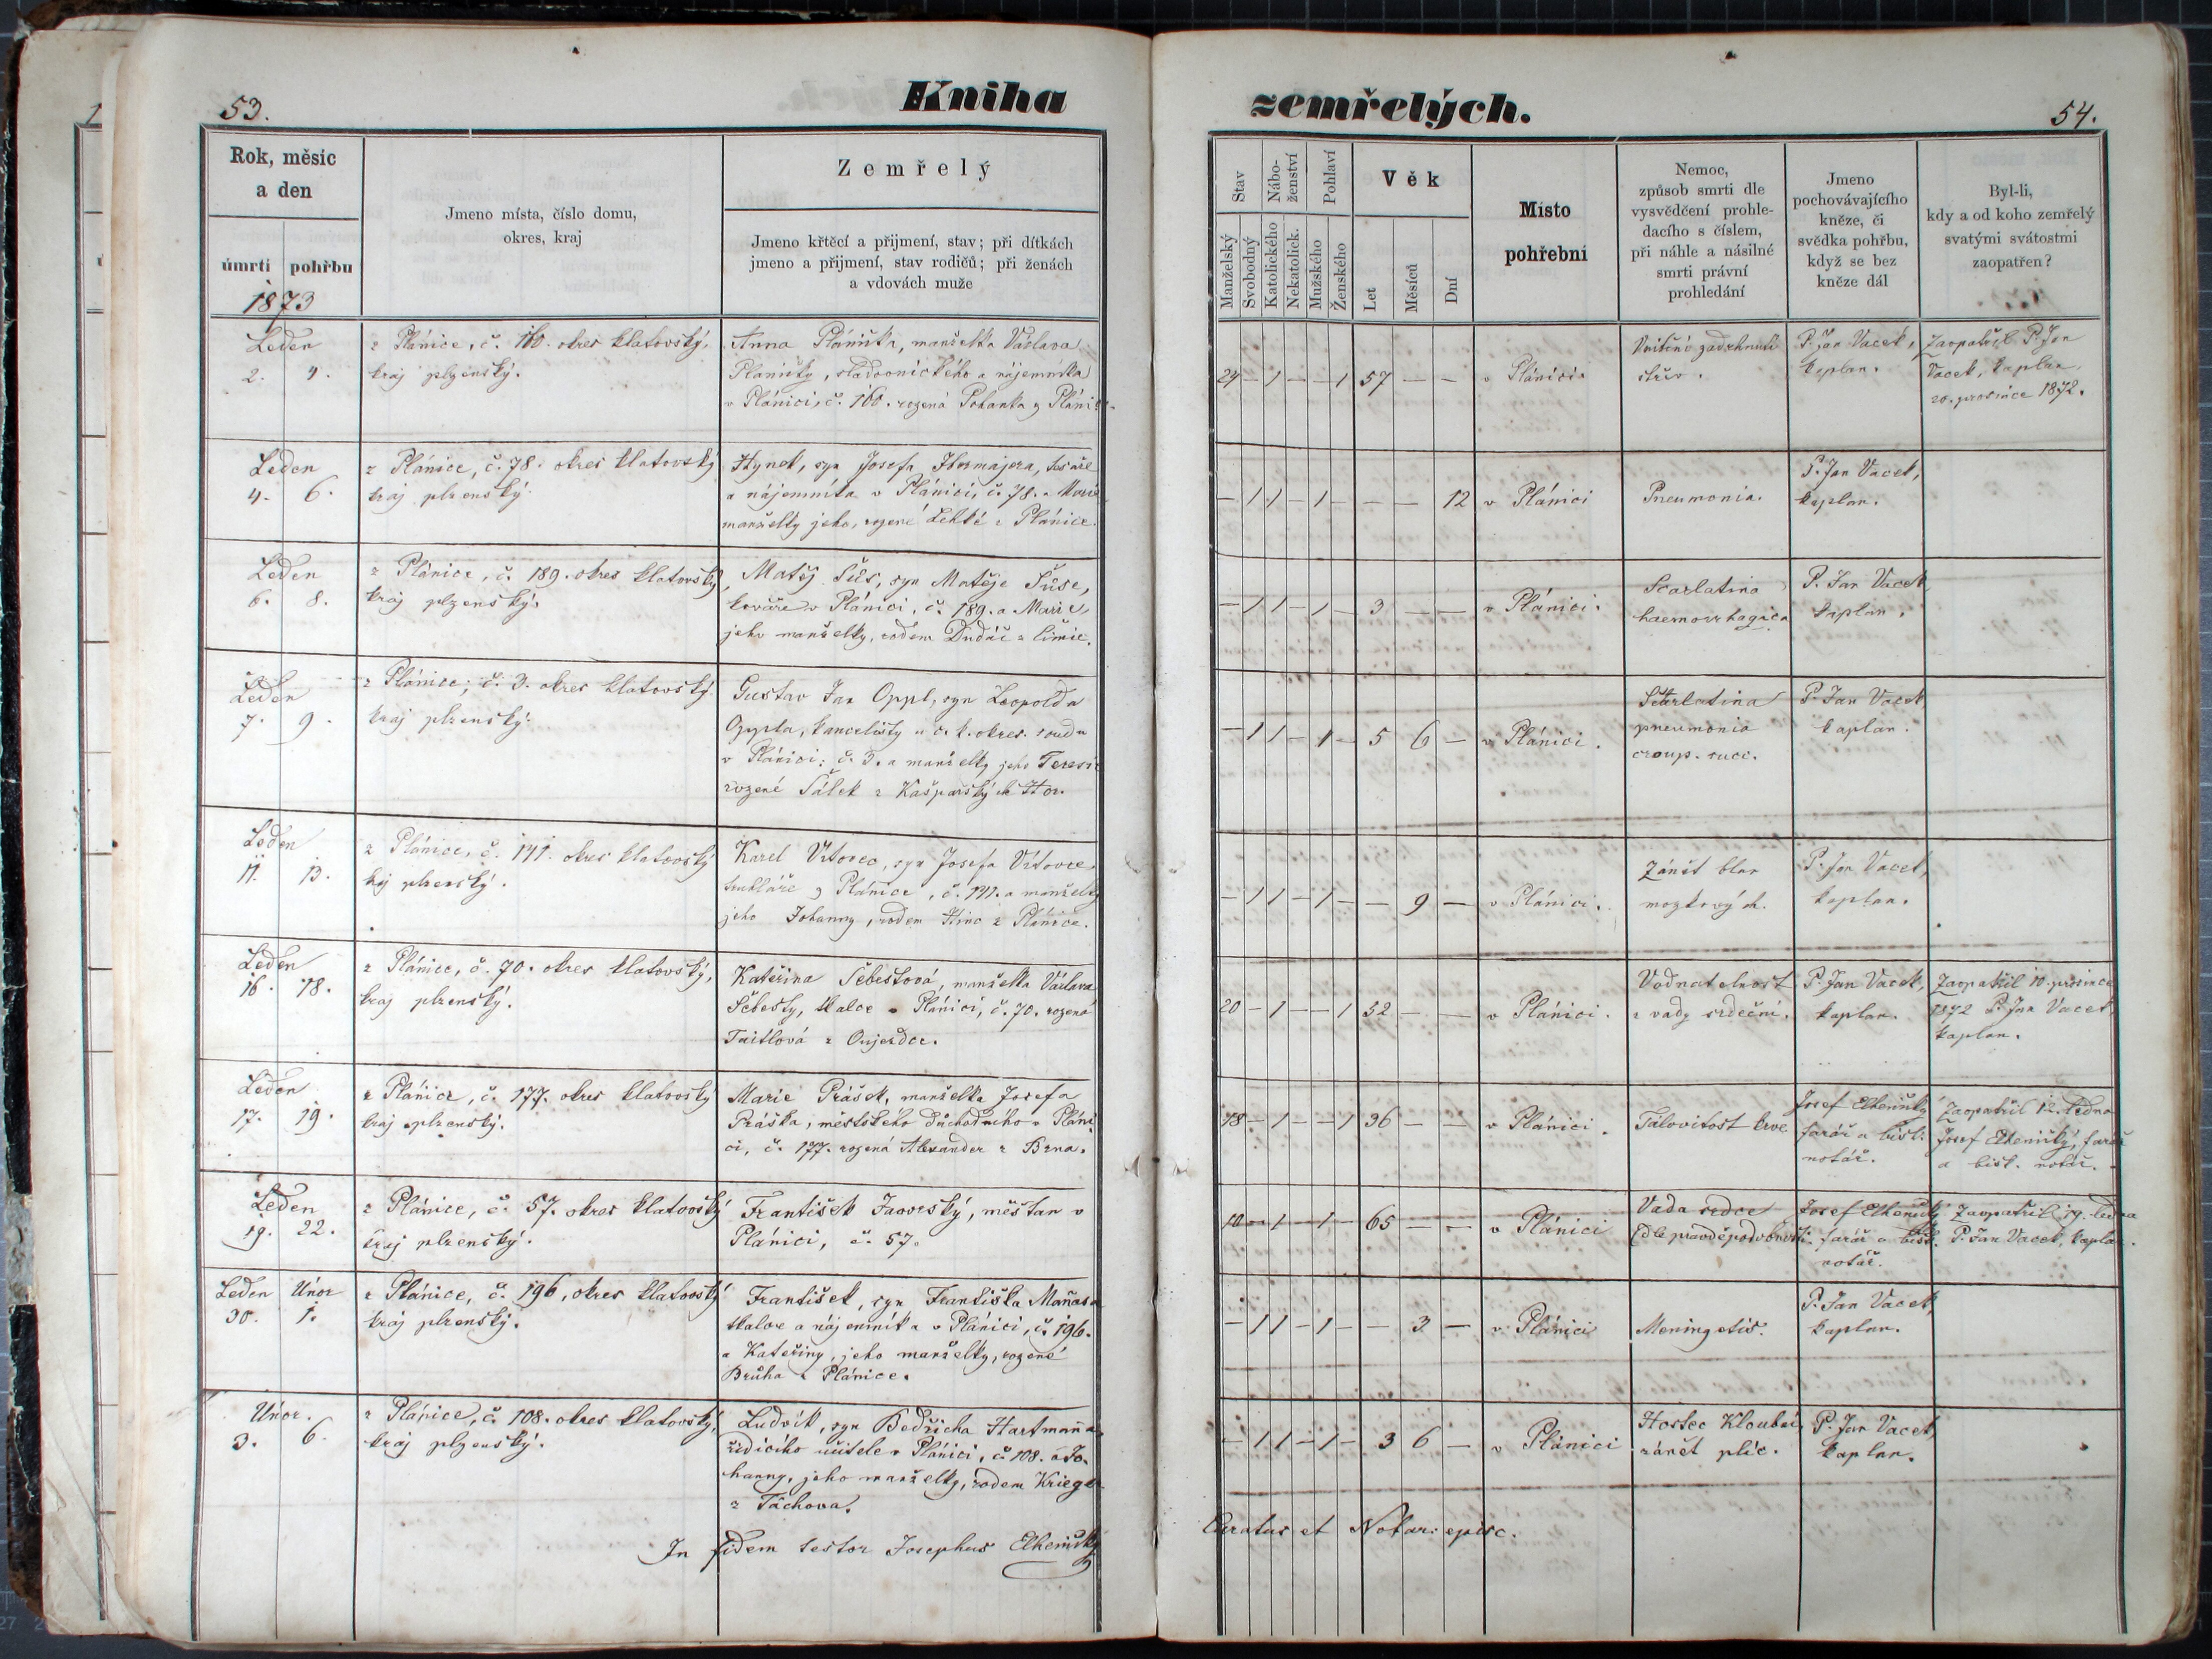 53.
Kniha
Rok, měsíc
a den
úmrtí pohřbu
Jmeno místa, číslo domu,
okres, kraj
Zemřelý
Jmeno křtěcí a přijmení, stav; při dítkách
jmeno a přijmení, stav rodičů; při ženách
a vdovách muže
1873
Leden
2. 4.
z Plánice, č. 160. okres klatovský,
kraj plzenský.
Anna manželka Václava
a nájemníka
v Plánici, č. 160. rozená Pohanka z
Leden
4. 6.
z Plánice, č. 78. okres klatovský
kraj plzenský.
Hynek, syn Josefa tesaře
a nájemníka v Plánici, č. 78. a Marie
manželky jeho, rozené z Plánice.
Leden
6. 8.
z Plánice, č. 189. okres klatovský,
kraj plzenský.
Matěj Šůs, syn Matěje Šůse,
kováře v Plánici, č. 189. a Marie,
jeho manželky, rodem Dudáč z
Leden
7. 9.
z Plánice, č. 3. okres klatovský.
kraj plzenský.
Gustav Jan Oppl, syn Leopolda
Oppla, kancelisty u c. k. okres. soudu
v Plánici; č. 3. a manželky jeho Teresie
rozené Šálek z Kašparských Hor.
Leden
11. 13.
z Plánice, č. 141. okres klatovský
kraj plzenský.
Karel Vrtovec, syn Josefa Vrtovce,
truhláře z Plánice, č. 141. a manželky
jeho Johanny, rodem z Plánice.
Leden
16. 18.
z Plánice, č. 70. okres klatovský,
kraj plzenský.
Kateřina Šebestová, manželka Václava
Šebesty, tkalce v Plánici, č. 70. rozená
z Oujezdce.
Leden
17. 19.
z Plánice, č. 177. okres klatovský
kraj plzenský.
Marie Prášek, manželka Josefa
Práška, městského důchodního v Pláni-
ci, č. 177. rozená Alexander z Brna.
Leden
19. 22.
z Plánice, č. 57. okres klatovský
kraj plzenský.
František Javorský, měšťan v
Plánici, č. 57.
Leden Únor
30. 1.
z Plánice, č. 196, okres klatovský
kraj plzenský.
František, syn Františka Maňasa
tkalce a nájemníka v Plánici, č. 196.
a Kateřiny, jeho manželky, rozené
Brůha z Plánice.
Únor.
3. 6.
z Plánice, č. 108. okres klatovský,
kraj plzenský.
Ludvík, syn Bedřicha Hartmanna
řídícího učitele v Plánici, č. 108. a Jo-
hanny, jeho manželky, rodem Krieger
z Tachova.
In fidem testor Josephus Elhenický
zemřelých.
54.
Stav
Nábo-
ženství
Pohlaví
Věk
Manželský
Svobodný
Katolického
Nekatolick.
Mužského
Ženského
Let
Měsíců
Dní
Místo
pohřební
Nemoc,
způsob smrti dle
vysvědčení prohle-
dacího s číslem,
při náhle a násilné
smrti právní
prohledání
Jmeno
pochovávajícího
kněze, či
svědka pohřbu,
když se bez
kněze dál
Byl-li,
kdy a od koho zemřelý
svatými svátostmi
zaopatřen?
24 – 1 – – 1 57 – – v Plánici.
Vnitřní zadrhnutí
střev.
P. Jan Vacek,
kaplan.
Zaopatřil P. Jan
Vacek, kaplan,
20. prosince 1872.
– 1 1 – 1 – – – 12 v Plánici
Pneumonia.
P. Jan Vacek,
kaplan.
– 1 1 – 1 – 3 – – v Plánici.
Scarlatina
haemorrhagica
P. Jan Vacek,
kaplan.
– 1 1 – 1 – 5 6 – v Plánici.
Scarlatina
pneumonia
croup. succ.
P. Jan Vacek,
kaplan.
– 1 1 – 1 – – 9 – v Plánici.
Zánět blan
mozkových.
P. Jan Vacek,
kaplan.
20 – 1 – – 1 52 – – v Plánici.
Vodnatelnost
z vady srdeční.
P. Jan Vacek,
kaplan.
Zaopatřil 10. prosince
1872 P. Jan Vacek,
kaplan.
18 – 1 – – 1 36 – – v Plánici.
Talovitost krve
Josef Elhenický
farář a bisk.
notář.
Zaopatřil 12. ledna
Josef Elhenický, farář
a bisk. notář.
10 – 1 – 1 – 65 – – v Plánici
Vada srdce
(dle pravděpodobnosti
Josef Elhenický
farář a bisk.
notář.
Zaopatřil 19. ledna
P. Jan Vacek, kaplan.
– 1 1 – 1 – – 3 – v Plánici
Meningetis.
P. Jan Vacek,
kaplan.
– 1 1 – 1 – 3 6 – v Plánici
Hostec Kloubní,
zánět plic.
P. Jan Vacek,
kaplan.
Curatus et Notar. episc.